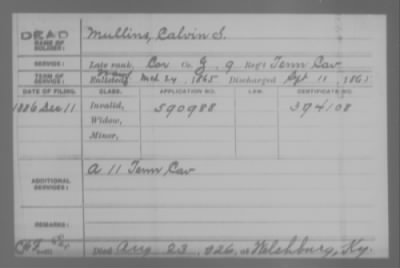 DEAD
NAME OF SOLDIER: Mullins, Calvin S.
SERVICE: Late rank, Cor Co. G, 9 Reg't Tenn Cav
TERM OF SERVICE: Enlisted Mch 24, 1865 Discharged Sept 11, 1865
DATE OF FILING. CLASS. APPLICATION NO. LAW. CERTIFICATE NO.
1886 Dec 11 Invalid, 590988 394108
Widow,
Minor,
ADDITIONAL SERVICES: A 11 Tenn Cav
REMARKS:
Died Aug 23, 1926, at Welchburg, Ky.